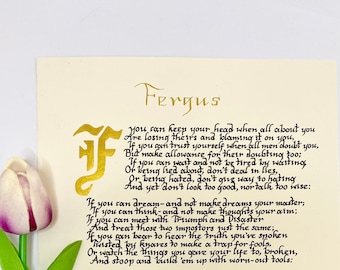 Fergus
If you can keep your head when all about you
Are losing theirs and blaming it on you,
If you can trust yourself when all men doubt you,
But make allowance for their doubting too;
If you can wait and not be tired by waiting,
Or being lied about, don't deal in lies,
Or being hated, don't give way to hating
And yet don't look too good, nor talk too wise:
If you can dream- and not make dreams your master;
If you can think- and not make thoughts your aim;
If you can meet with Triumph and Disaster
And treat those two impostors just the same;
If you can bear to hear the truth you've spoken
Twisted by knaves to make a trap for fools,
Or watch the things you gave your life to, broken,
And stoop and build 'em up with worn-out tools: